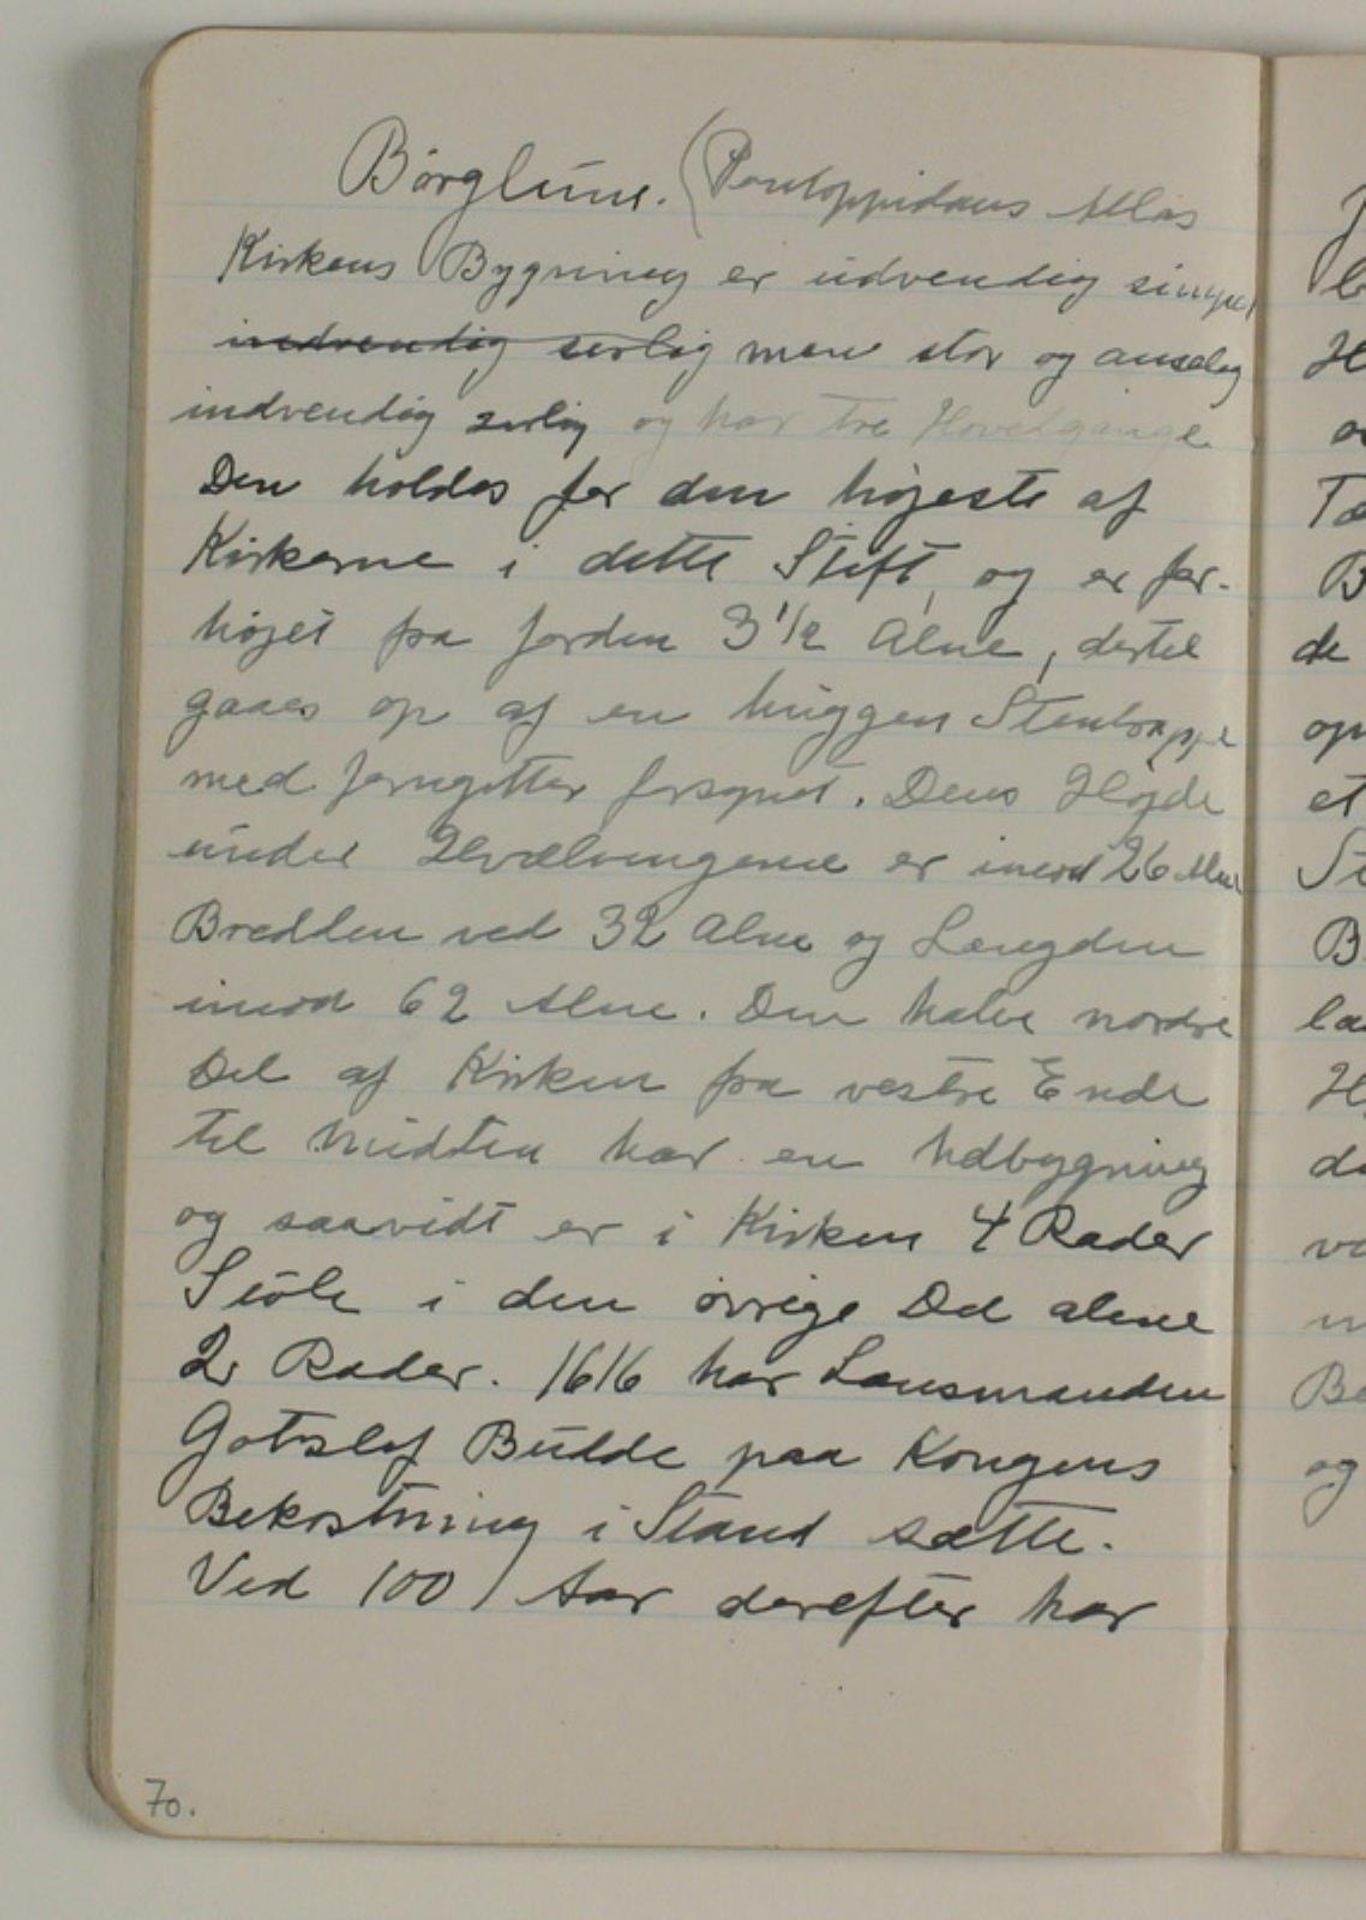 Børglum. (Pontoppidans Atlas
Kirkens Bygning er udvendig simpel
indvendig sirlig men stor og anselig
indvendig sirlig og har tre Hovedgange
Den holdes for den højeste af
Kirkerne i dette Stift, og er for-
højet fra Jorden 3 1/2 Alne, dertil
gaaes op af en huggen Stentrappe
med Jerngitter forsynet. Dens Højde
under Hvælvingerne er imod 26 Alne
Bredden ved 32 Alne og Længden
imod 62 Alne. Den halve nordre
Del af Kirken fra vestre Ende
til Midten har en Udbygning
og saavidt er i Kirken 4 Rader
Stole i den øvrige Del alene
2 Rader. 1616 har Lensmanden
Gotslef Budde paa Kongens
Bekostning i Stand sætte.
Ved 100 Aar derefter har
70.
B
de
op
et
B
og